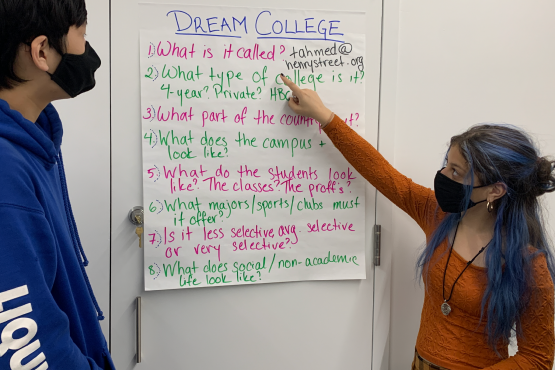 DREAM COLLEGE
1) What is it called? tahmed@
henrystreet.org
2) What type of college is it?
4-year? Private?
3) What part of the it?
4) What does the campus +
look like?
5) What do the students look
like? The classes? The proff's?
6) What majors/sports/clubs must
it offer?
7) Is it less selective avg. selective
or very selective?
8) What does social/non-academic
life look like?